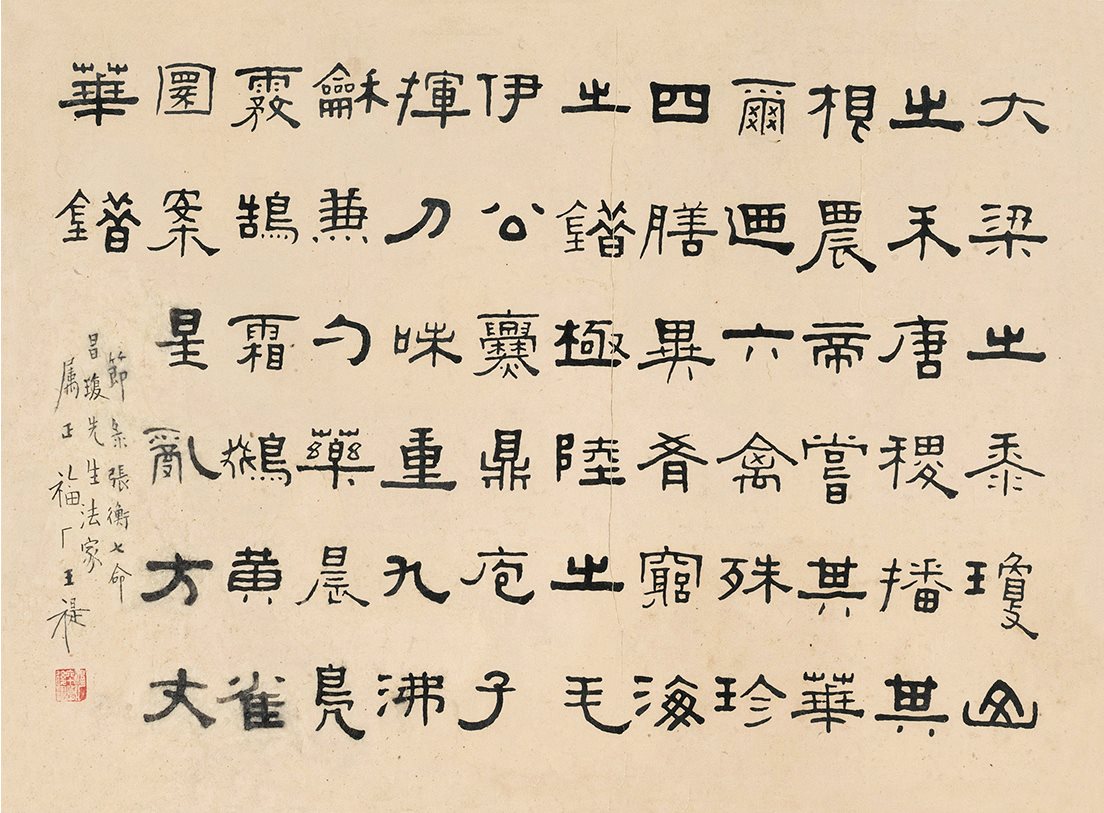 大梁之黍瓊山
之禾唐稷播其
根農帝嘗其華
爾迺六禽殊珍
四膳異肴窮海
之錯極陸之毛
伊公爨鼎庖子
揮刀味重九沸
龢兼勺藥晨鳧
霚鵠霜鵽黃雀
圜案星亂方丈
華錯
節彔張衡七命
昌瓊先生法家
属正福厂王禔